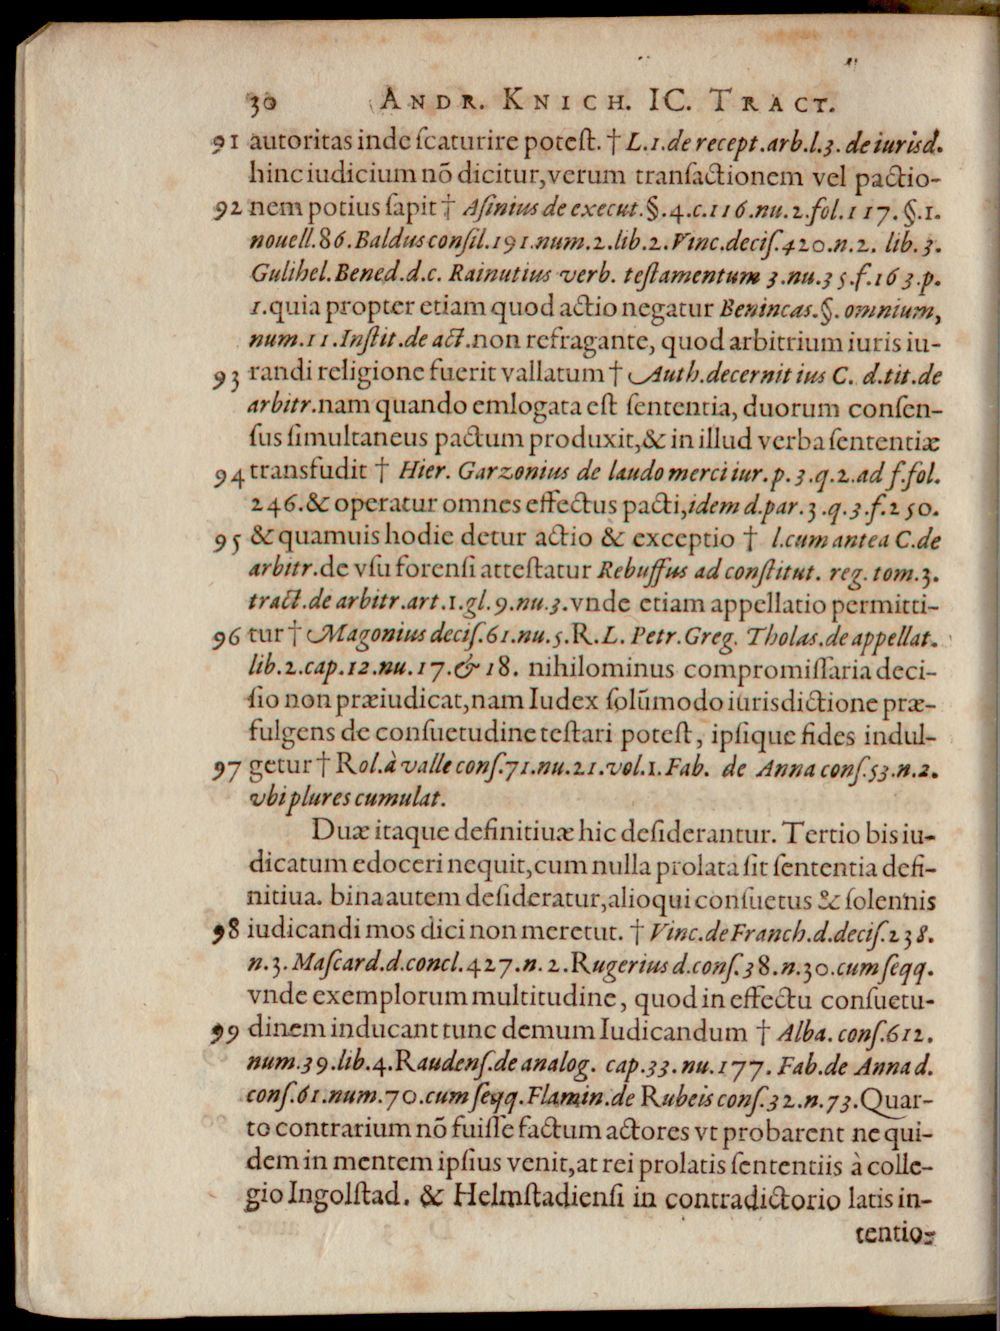 30 ANDR. KNICH. IC. TRACT.
91 autoritas inde ſcaturire poteſt. † L.1.de recept.arb.l.3. de iurisd.
hinc iudicium nõ dicitur,verum tranſactionem vel pactio-
92 nem potius ſapit † Aſinius de execut.§.4.c.116.nu.2.fol.117.§.1.
nouell.86.Baldus conſil.191.num.2.lib.2.Vinc.deciſ.420.n.2. lib.3.
Gulihel.Bened.d.c. Rainutius verb. teſtamentum 3.nu.35.f.163.p.
1.quia propter etiam quod actio negatur Benincas.§. omnium,
num.11.Inſtit.de act.non refragante, quod arbitrium iuris iu-
93 randi religione fuerit vallatum † Auth.decernit ius C. d.tit.de
arbitr.nam quando emlogata eſt ſententia, duorum conſen-
ſus ſimultaneus pactum produxit,& in illud verba ſententiæ
94 transfudit † Hier. Garzonius de laudo merci iur.p.3.q.2.ad f.fol.
246.& operatur omnes effectus pacti,idem d.par.3.q.3.f.250.
95 & quamuis hodie detur actio & exceptio † l.cum antea C.de
arbitr.de vſu forenſi atteſtatur Rebuffus ad conſtitut. reg. tom.3.
tract.de arbitr.art.1.gl.9.nu.3.vnde etiam appellatio permitti-
96 tur † Magonius deciſ.61.nu.5.R.L. Petr.Greg. Tholas.de appellat.
lib.2.cap.12.nu.17.& 18. nihilominus compromiſſaria deci-
ſio non præiudicat,nam Iudex ſolũmodo iurisdictione præ-
fulgens de conſuetudine teſtari poteſt, ipſique fides indul-
97 getur † Rol.à valle conſ.71.nu.21.vol.1.Fab. de Anna conſ.53.n.2.
vbi plures cumulat.
Duæ itaque definitiuæ hic deſiderantur. Tertio bis iu-
dicatum edoceri nequit,cum nulla prolata ſit ſententia defi-
nitiua. bina autem deſideratur,alioqui conſuetus & ſolennis
98 iudicandi mos dici non meretut. † Vinc.de Franch.d.deciſ.238.
n.3.Maſcard.d.concl.427.n.2.Rugerius d.conſ.38.n.30.cum ſeqq.
vnde exemplorum multitudine, quod in effectu conſuetu-
99 dinem inducant tunc demum Iudicandum † Alba. conſ.612.
num.39.lib.4.Raudenſ.de analog. cap.33.nu.177. Fab.de Anna d.
conſ.61.num.70.cum ſeqq.Flamin.de Rubeis conſ.32.n.73.Quar-
to contrarium nõ fuiſſe factum actores vt probarent ne qui-
dem in mentem ipſius venit,at rei prolatis ſententiis à colle-
gio Ingolſtad. & Helmſtadienſi in contradictorio latis in-
tentio-